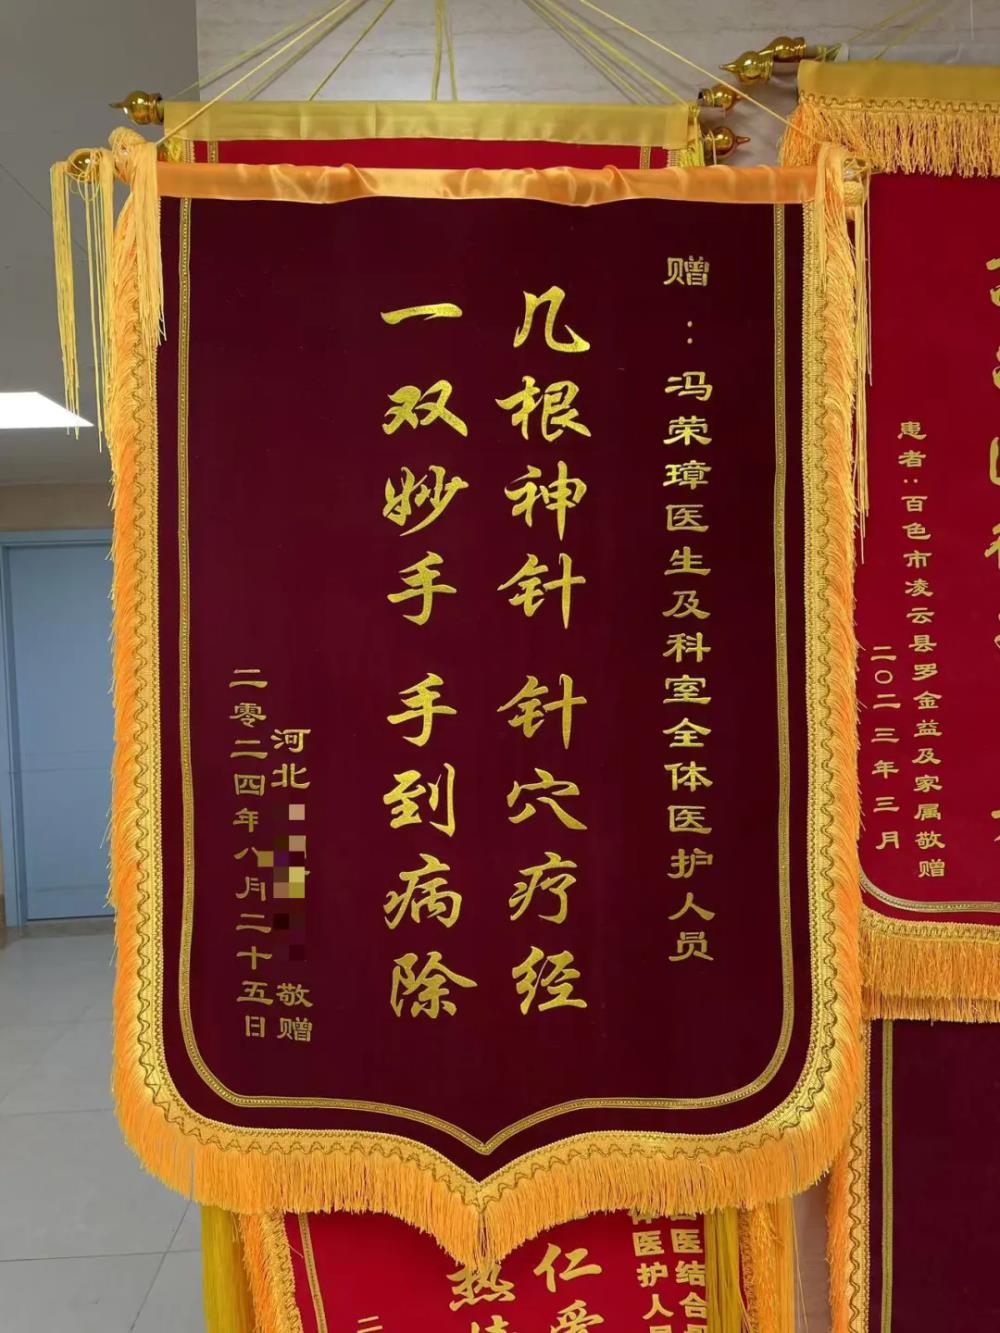 赠：冯荣璋医生及科室全体医护人员
几根神针 针穴疗经
一双妙手 手到病除
河北
敬赠
二零二四年八月二十五日
患者：百色市凌云县罗金益及家属敬赠
二〇二三年三月
医结合
医护人员
仁爱
热
二